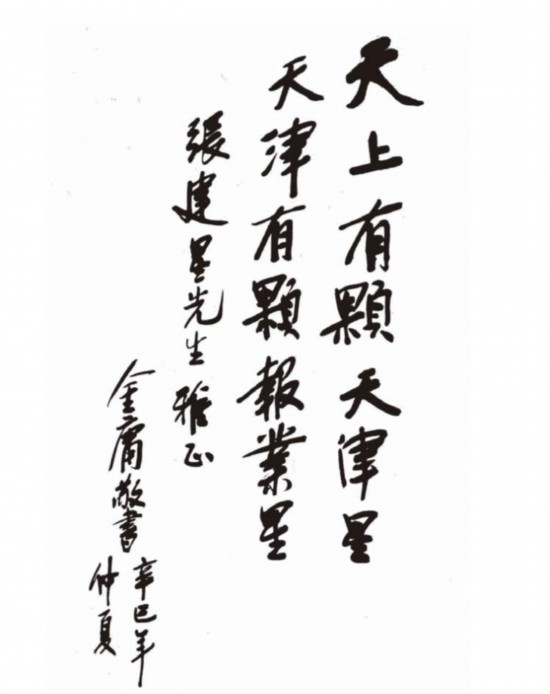 天上有顆天津星
天津有顆報業星
張建星先生雅正
金庸敬書
辛巳年
仲夏